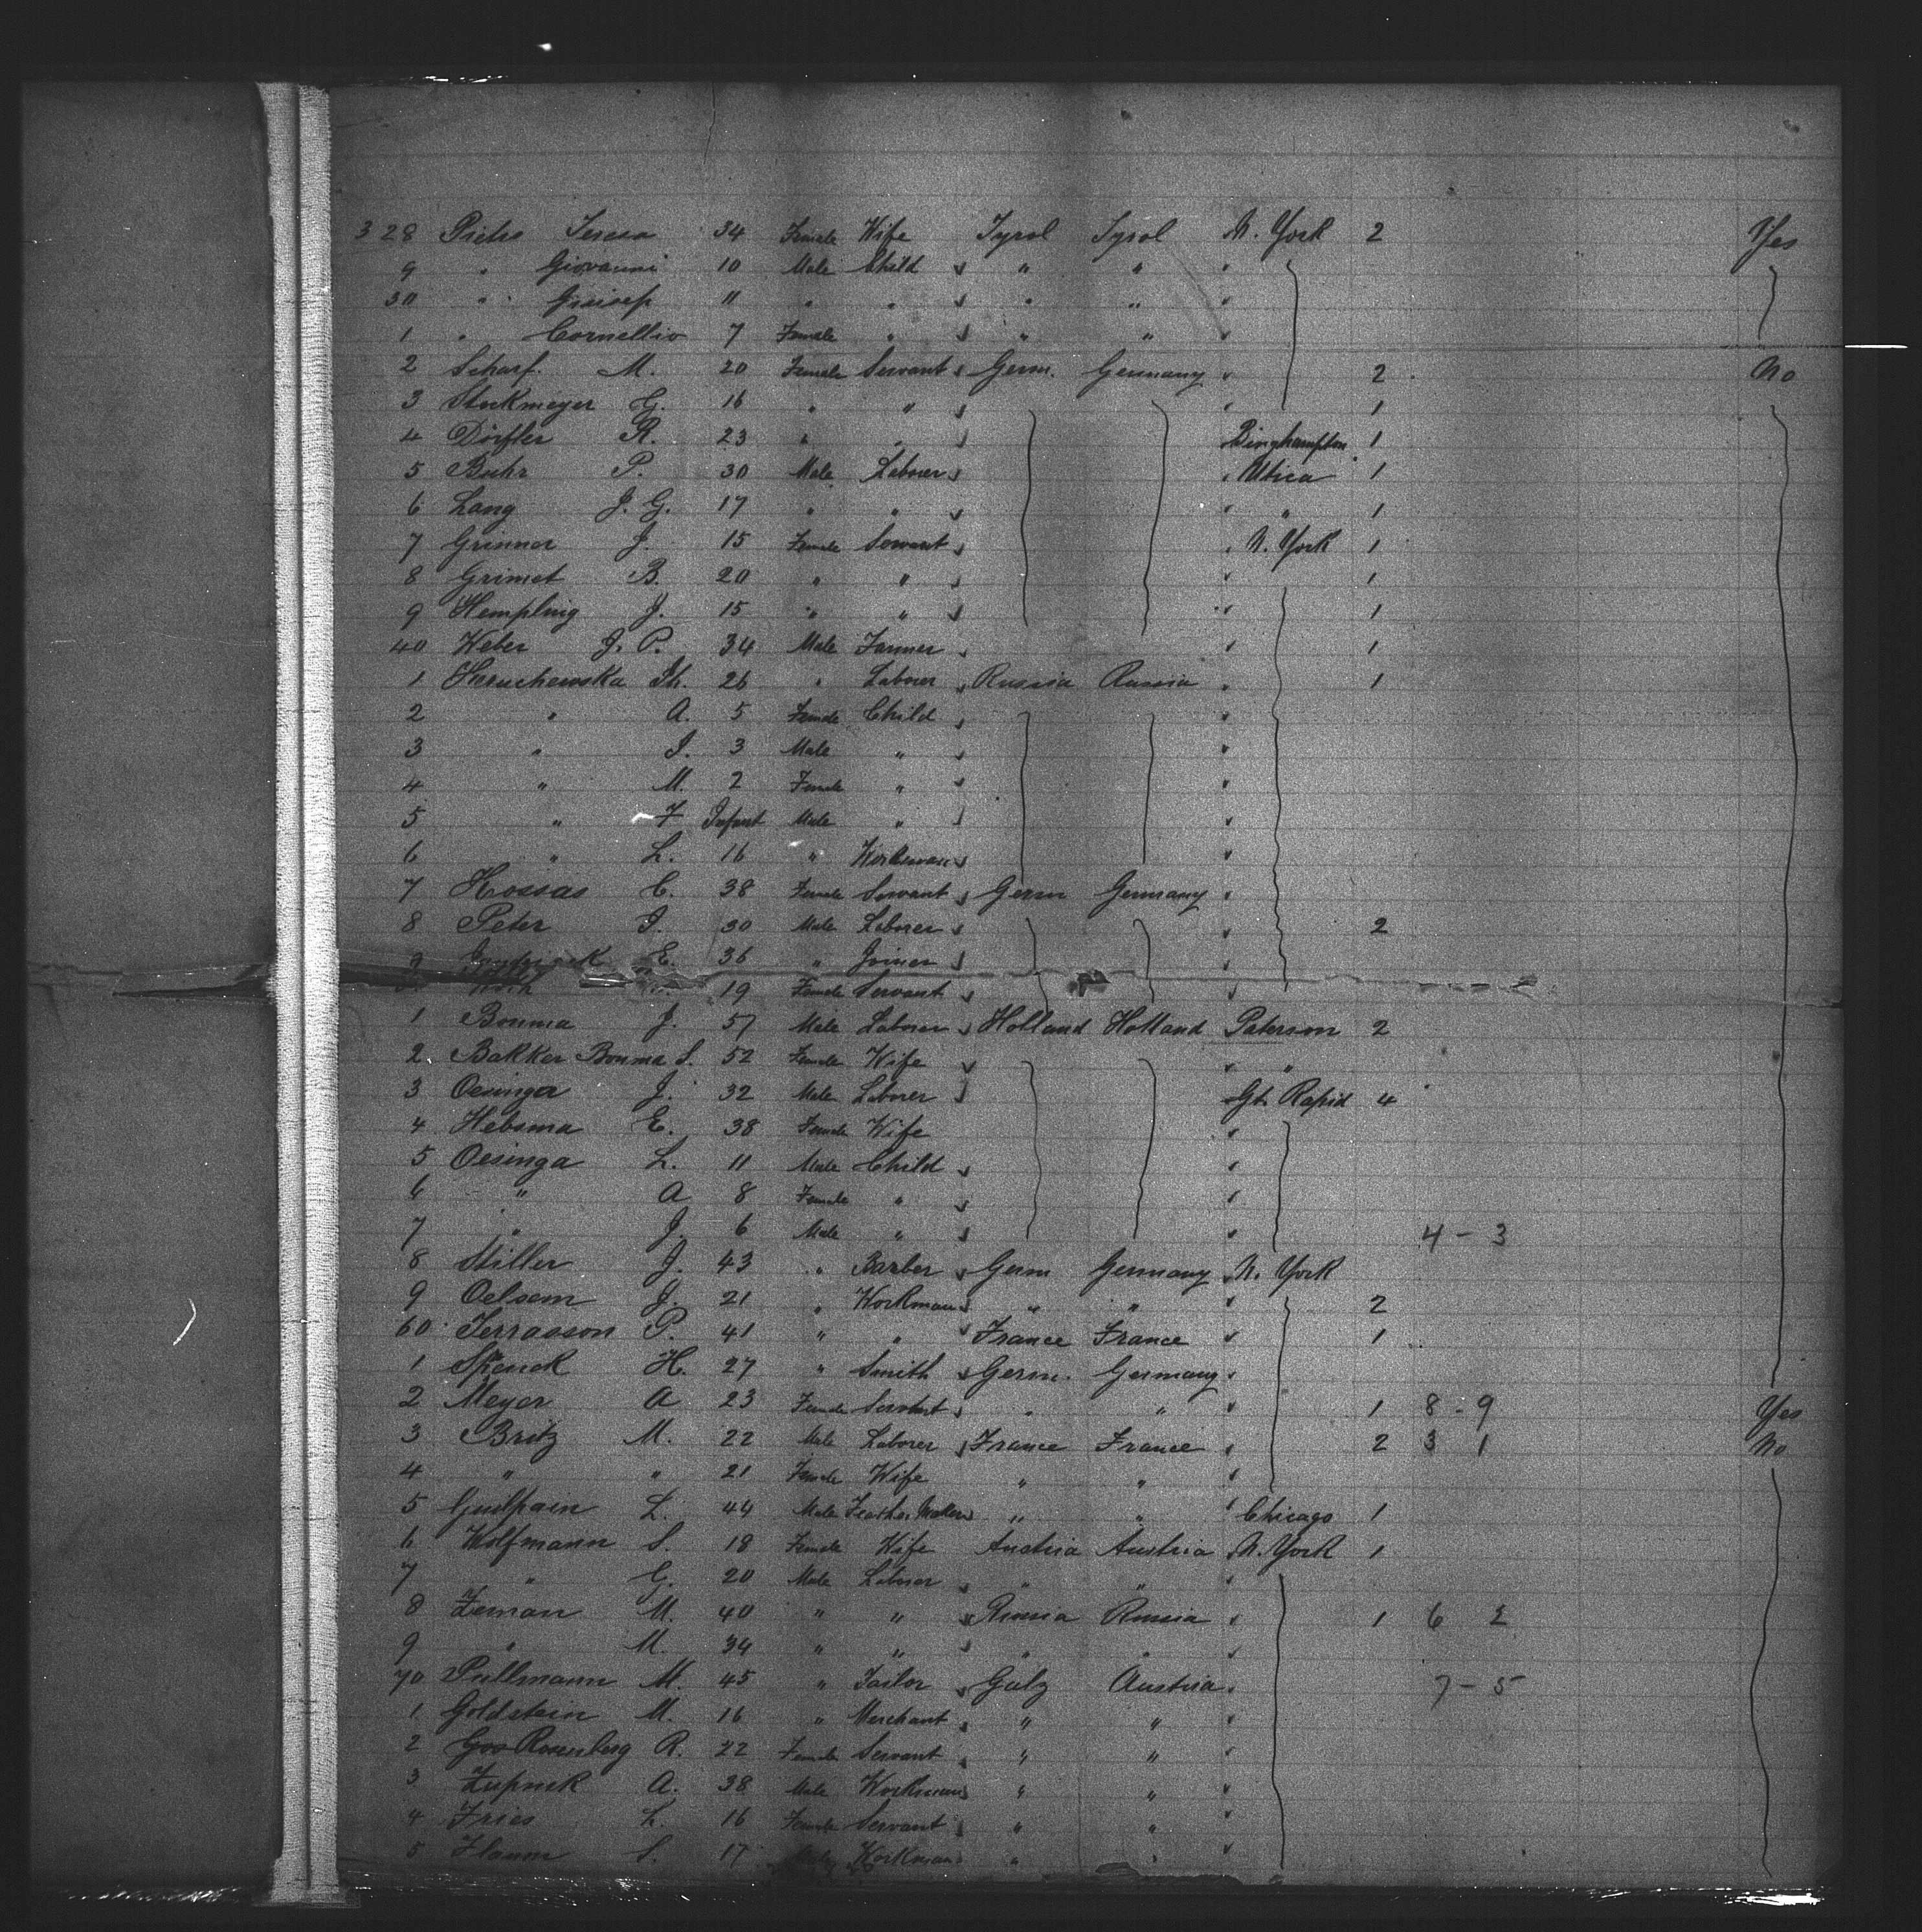 328 Pietro Teresa 34 Female Wife Tyrol Tyrol N. York 2 Yes
9 " Giovanni 10 Male Child " " "
30 " Guisep 11 " " " " "
1 " Cornellio 7 Female " " " "
2 Scharf. M. 20 Female Servant Germ. Germany " 2 No
3 Stockmeyer G. 16 " " " 1
4 Dörfler R. 23 " " Binghampton 1
5 Buhr P. 30 Male Laborer " Utica 1
6 Lang J. G. 17 " " " " 1
7 Grinner J. 15 Female Servant " N. York 1
8 Grimet B. 20 " " " 1
9 Hempling J. 15 " " " 1
40 Weber J. P. 34 Male Farmer " 1
1 Hruchewska Th. 26 " Laborer Russia Russia " 1
2 " A. 5 Female Child "
3 " J. 3 Male " "
4 " M. 2 Female " "
5 " F Infant Male " "
6 " L. 16 " Workman "
7 Hossas C. 38 Female Servant Germ Germany "
8 Peter J. 30 Male Laborer " 2
9 E. 36 " Joiner "
19 Female Servant "
1 Bouma J. 57 Male Laborer Holland Holland Paterson 2
2 Bakker Bouma S. 52 Female Wife " "
3 Oesinga J. 32 Male Laborer Gt. Rapid 4
4 Hebsma E. 38 Female Wife "
5 Oesinga L. 11 Male Child "
6 " A 8 Female " "
7 " J. 6 Male " " 4 - 3
8 Stiller J. 43 " Barber Germ Germany N. York
9 Oelsem J. 21 " Workman " " " 2
60 Terrasson P. 41 " " France France " 1
1 Spenck H. 27 " Smith Germ. Germany "
2 Meyer A 23 Female Servant " " " 1 8 - 9 Yes
3 Britz M. 22 Male Laborer France France " 2 3 1 No
4 " " 21 Female Wife " " "
5 Guilpain L. 44 Male Feather Maker " " " Chicago 1
6 Wolfmann S. 18 Female Wife Austria Austria N. York 1
7 " G. 20 Male Laborer " " "
8 Zeman M. 40 " " Russia Russia " 1 6 2
9 " M. 34 " " " " "
70 Pullmann M. 45 " Tailor Galz Austria " 7 - 5
1 Goldstein M. 16 " Merchant " " "
2 Rosenberg R. 22 Female Servant " " "
3 Zupnik A. 38 Male Workman " " "
4 Fries L. 16 Female Servant " " "
5 Flamm S. 17 Male Workman " " "